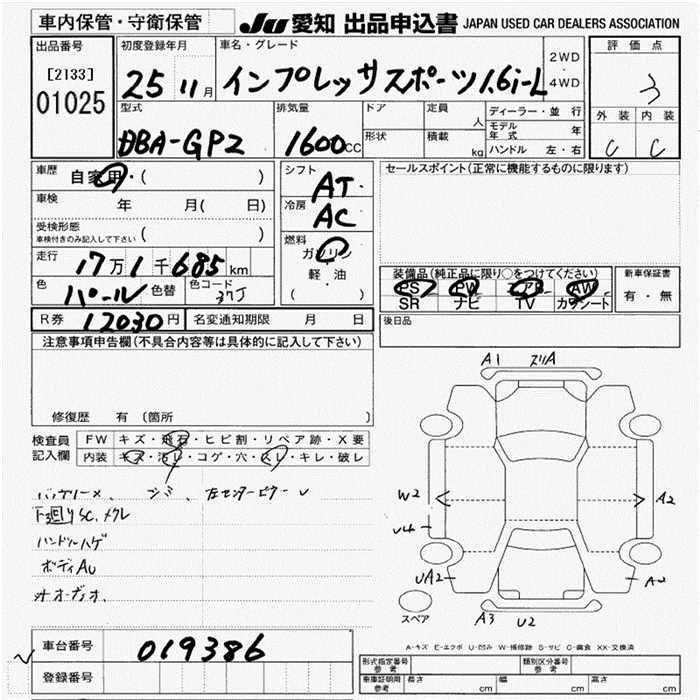 車内保管・守衛保管
JU 愛知 出品申込書 JAPAN USED CAR DEALERS ASSOCIATION
出品番号
[2133]
01025
初度登録年月
25 11月
車名・グレード
インプレッサスポーツ1.6i-L
2WD
4WD
評価点
3
外装 内装
C C
型式
DBA-GP2
排気量
1600CC
ドア
形状
定員
人
積載
kg
ディーラー・並行
モデル年式 年
ハンドル 左・右
車歴
自家用・( )
車検
年 月( 日)
受検形態
車検付きのみ記入して下さい
走行
17万1千685km
色
パール
色替
色コード
37J
シフト
AT
冷房
AC
燃料
ガソリン
軽・油
( )
セールスポイント(正常に機能するものに限ります)
装備品(純正品に限り○をつけてください)
PS PW AB AW
SR ナビ TV カワシート
新車保証書
有・無
R券 12030円
名変通知期限 月 日
後日品
注意事項申告欄(不具合内容等は具体的に記入して下さい)
修復歴 有(箇所
検査員記入欄
FW キズ・飛石・ヒビ割・リペア跡・X要
内装 キズ・汚レ・コゲ・穴・スレ・キレ・破レ
下廻りSC、メクレ
ハンドルハゲ
ボディAU
A1
W2
A2
U4
UA2
A3 U2
スペア
A-キズ E-エクボ U-凹み W-補修跡 S-サビ C-腐食 XX-交換済
車台番号
019386
登録番号
型式指定番号 参考
類別区分番号 参考
車庫証明用 参考
長さ cm
幅 cm
高さ cm